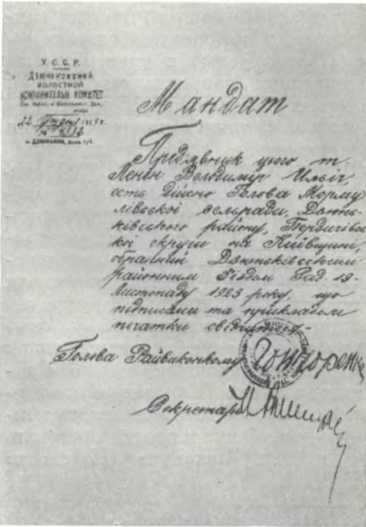 У. С. С. Р.
ДЗЮНЬКОВСКИЙ
ВОЛОСТНОЙ
ИСПОЛНИТЕЛЬН. КОМИТЕТ
22
Мандат
Пред'явник цього т.
Ленін Володимір Ильіч,
єсть дійсно Голова Морму
лівської сельради, Дзюнь-
ківського району, Бердичівсь
кої округи на Київщині,
обраний Дзюньківським
районним з'їздом Рад 19-
листопаду 1923 року, що
підписами та прикладом
печатки свідчиться.-
Голова Райвиконкому
Секретарь